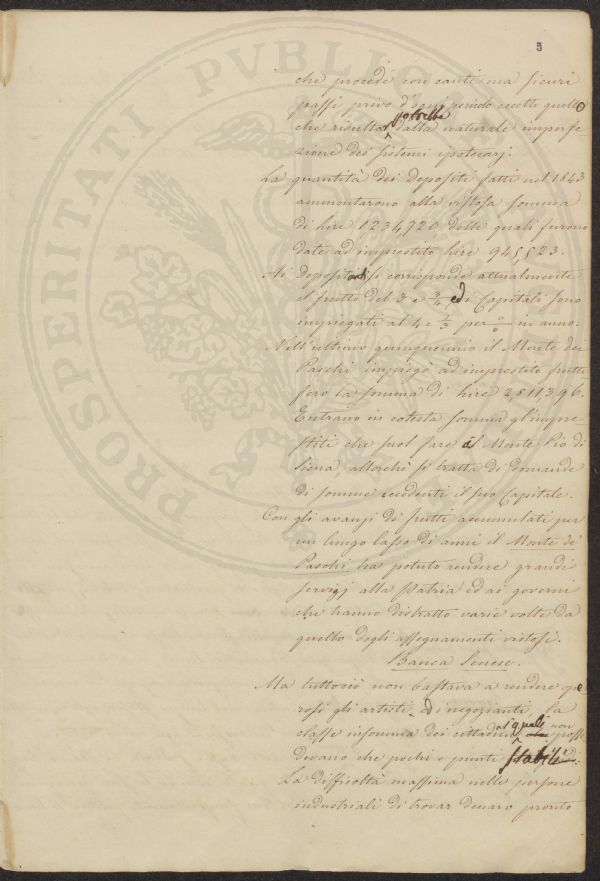 3
PROSPERITATI PVBLICAE
che procede con cauti ma sicuri
passi privo d'ogni pericolo eccetto quello
che risultar potrebbe dalla naturale imperfe-
zione dei sistemi ipotecarj.
La quantità dei Depositi fatti nel 1843
ammontarono alla vistosa somma
di Lire 1234720 delle quali furono
date ad imprestito Lire 945523.
Ai Depositanti si corrisponde attualmente
il frutto del 3 e 3/4 ed i Capitali sono
impiegati al 4 e 1/3 per % in anno.
Nell'ultimo quinquennio il Monte dei
Paschi impiegò ad imprestito frutti-
fero la somma di Lire 2811396.
Entrano in cotesta somma gl'impre-
stiti che suol fare il Monte Pio di
Siena, allorchè si tratti di domande
di somme eccedenti il suo Capitale.
Con gli avanzi di frutti accumulati per
un lungo lasso di anni il Monte de'
Paschi ha potuto rendere grandi
servigj alla Patria ed ai governi
che hanno distratto varie volte da
quello degli assegnamenti vistosi.
Banca Senese.
Ma tuttociò non bastava a rendere ope-
rosi gli artisti, ed i negozianti, la
classe insomma dei cittadini i quali non possi-
devano che pochi o punti stabili.
La difficoltà massima nelle persone
industriali di trovar denaro pronto